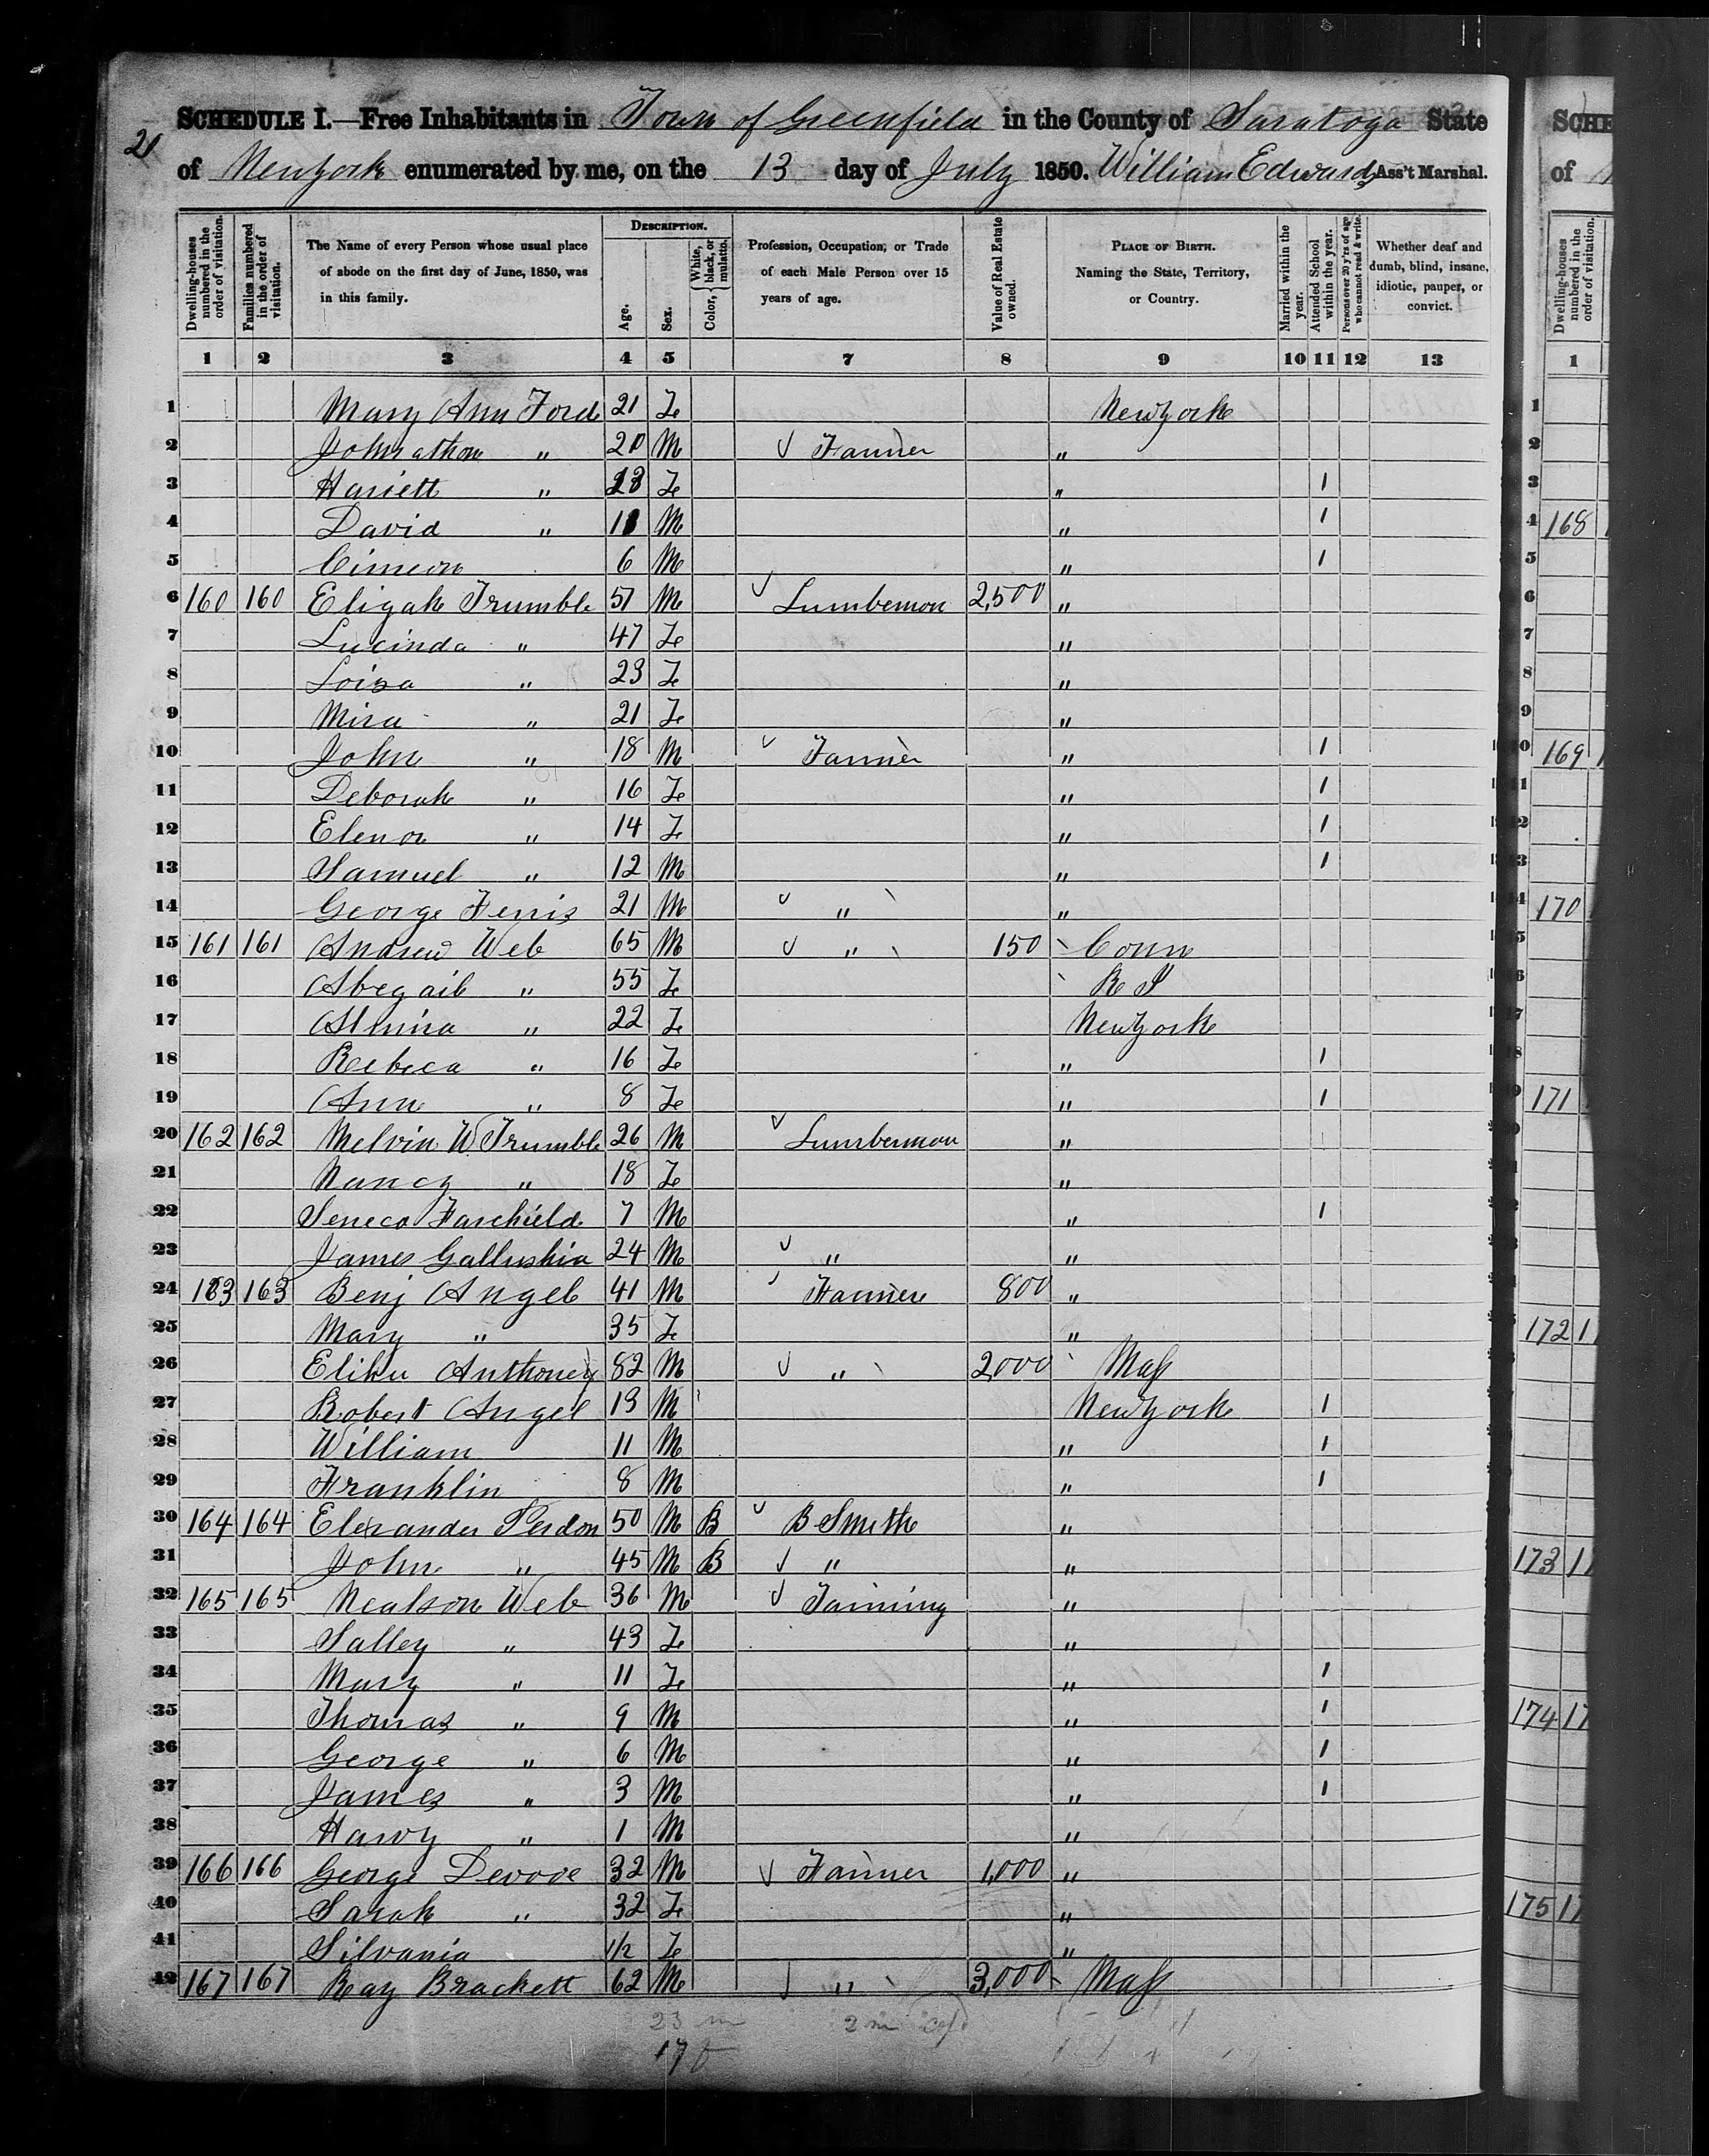 21
SCHEDULE I.—Free Inhabitants in Town of Greenfield in the County of Saratoga State
of Newyork enumerated by me, on the 13 day of July 1850. William Edwards Ass't Marshal.
Dwelling-houses numbered in the order of visitation. Families numbered in the order of visitation. The Name of every Person whose usual place of abode on the first day of June, 1850, was in this family. DESCRIPTION. Age. Sex. Color, { White, black, or mulatto. Profession, Occupation, or Trade of each Male Person over 15 years of age. Value of Real Estate owned. PLACE OF BIRTH. Naming the State, Territory, or Country. Married within the year. Attended School within the year. Persons over 20 y'rs of age who cannot read & write. Whether deaf and dumb, blind, insane, idiotic, pauper, or convict.
1 2 3 4 5 7 8 9 10 11 12 13
1 Mary Ann Ford 21 Fe Newyork
2 Johnathon " 20 M Farmer "
3 Hariett " Fe " 1
4 David " M " 1
5 Cimeon 6 M " 1
6 160 160 Eligah Trumble 57 M Lumbemon 2,500 "
7 Lucinda " 47 Fe "
8 Loiza " 23 Fe "
9 Mira " 21 Fe "
10 John " 18 M Farmer " 1
11 Deborah " 16 Fe " 1
12 Elenor " 14 Fe " 1
13 Samuel " 12 M " 1
14 George Ferris 21 M " "
15 161 161 Andrew Web 65 M " 150 Conn
16 Abegail " 55 Fe R I
17 Almira " 22 Fe Newyork
18 Rebeca " 16 Fe " 1
19 Ann " 8 Fe " 1
20 162 162 Melvin W Trumble 26 M Lumbermon "
21 Nancy " 18 Fe "
22 Seneca Farchield 7 M " 1
23 James Gallushia 24 M " "
24 163 163 Benj Angel 41 M Farmer 800 "
25 Mary " 35 Fe "
26 Elihu Anthoney 82 M " 2,000 Mass
27 Robert Angel 13 M Newyork 1
28 William 11 M " 1
29 Franklin 8 M " 1
30 164 164 Elexander Perdon 50 M B B Smith "
31 John " 45 M B " "
32 165 165 Nealson Web 36 M Farming "
33 Salley " 43 Fe "
34 Mary " 11 Fe " 1
35 Thomas " 9 M " 1
36 George " 6 M " 1
37 James " 3 M " 1
38 Harvy " 1 M "
39 166 166 George Devooe 32 M Farmer 1,000 "
40 Sarah " 32 Fe "
41 Silvania 1/2 Fe "
42 167 167 Ray Brackett 62 M " 3,000 Mass
23 m 2 m col
17 f
SCHE
of
Dwelling-houses numbered in the order of visitation.
1
168
169
170
171
172
173
174
175